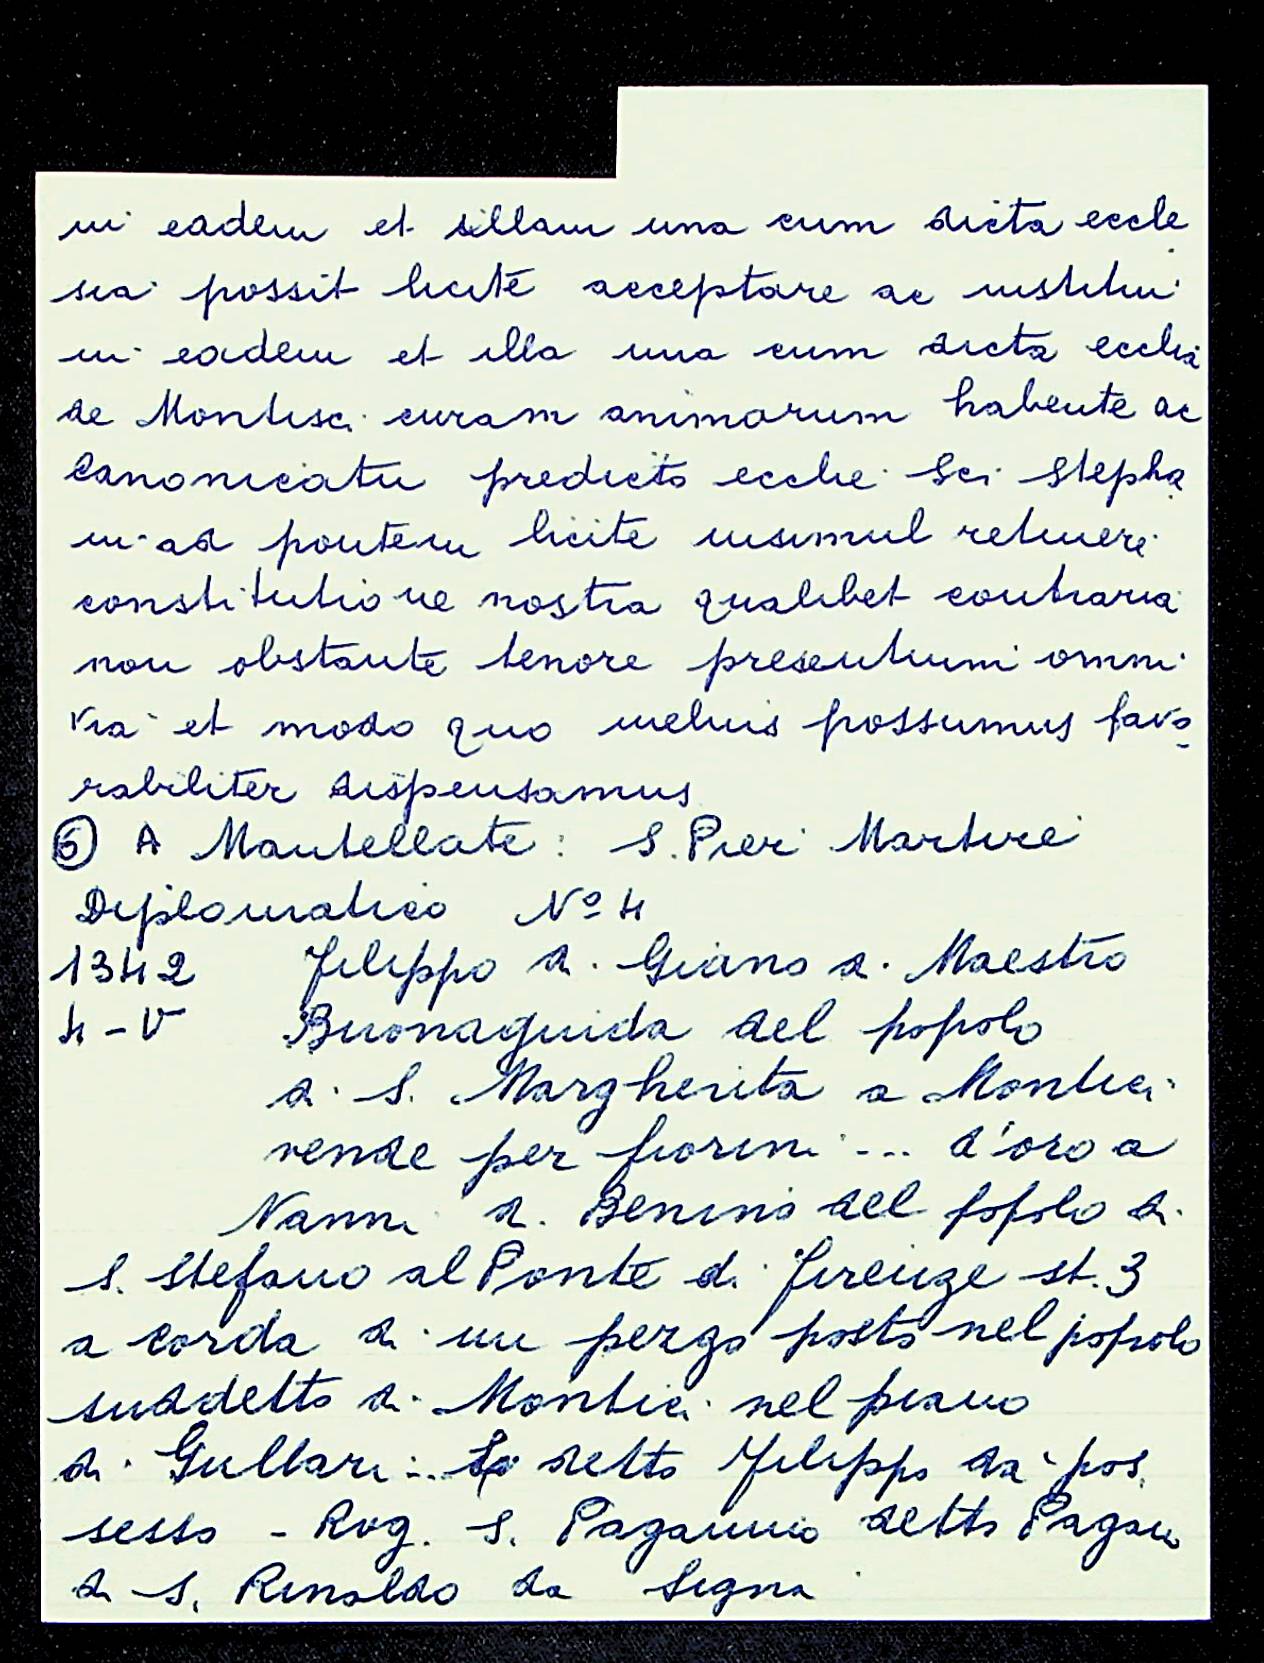 in eadem et illam una cum dicta eccle
sia possit licite acceptare ac institui
in eadem et illa una cum dicta ecclia
de Montisci curam animarum habente ac
Canonicatu predicto ecclie Sci Stepha
ni ad pontem licite insimul retineri
constitutione nostra qualibet contraria
non obstante tenore presentium omni
via et modo quo melius possumus favo
rabiliter dispensamus
⑥ A Mantellate: S. Pier Martire
Diplomatico Nº 4
1342 Filippo di Giano di Maestro
4-V Buonaguida del popolo
di S. Margherita a Montici
vende per fiorini ... d'oro a
Nanni di Benino del popolo di
S. Stefano al Ponte di Firenze st. 3
a corda di un pezzo posto nel popolo
suddetto di Montici nel piano
di Gullari... Lo detto Filippo dà pos
sesso - Rog. S. Paganino detto Pagano
di S. Rinaldo da Signa